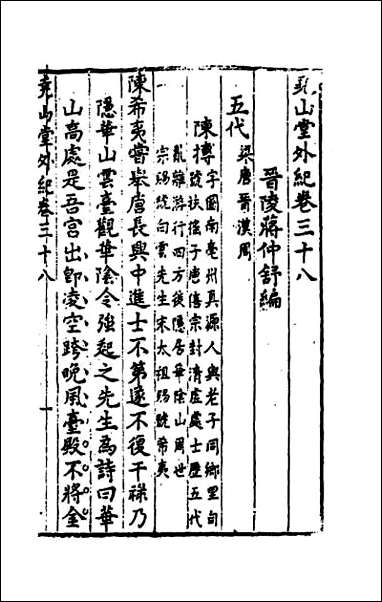 堯山堂外紀卷三十八
晉陵蔣仲舒編
五代 梁唐晉漢周
陳摶字圖南亳州真源人與老子同鄉里自
號扶搖子唐僖宗封清虛處士歷五代
亂離游行四方後隱居華陰山周世
宗賜號白雲先生宋太祖賜號希夷
陳希夷嘗舉唐長興中進士不第遂不復干祿乃
隱華山雲臺觀華陰令強起之先生為詩曰華
山高處是吾宮出卽凌空跨晚風臺殿不將金
堯山堂外紀卷三十八 一